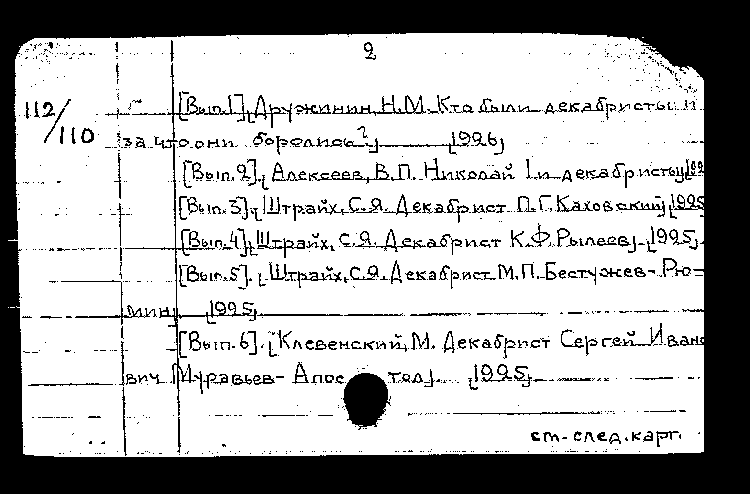 2
112/110
[Вып.1], Дружинин, Н.М. Кто были декабристы и
за что они боролись? [1926]
[Вып.2]. [Алексеев, В.П. Николай I и декабристы]
[Вып.3]. [Штрайх, С.Я. Декабрист П.Г. Каховский] [1925
[Вып.4]. [Штрайх, С.Я. Декабрист К.Ф. Рылеев]. [1925].
[Вып.5]. [Штрайх, С.Я. Декабрист М.П. Бестужев-Рю-
мин] [1925].
[Вып.6]. [Клевенский, М. Декабрист Сергей Ивано
вич Муравьев-Апос тол]. [1925].
см. след. карт.